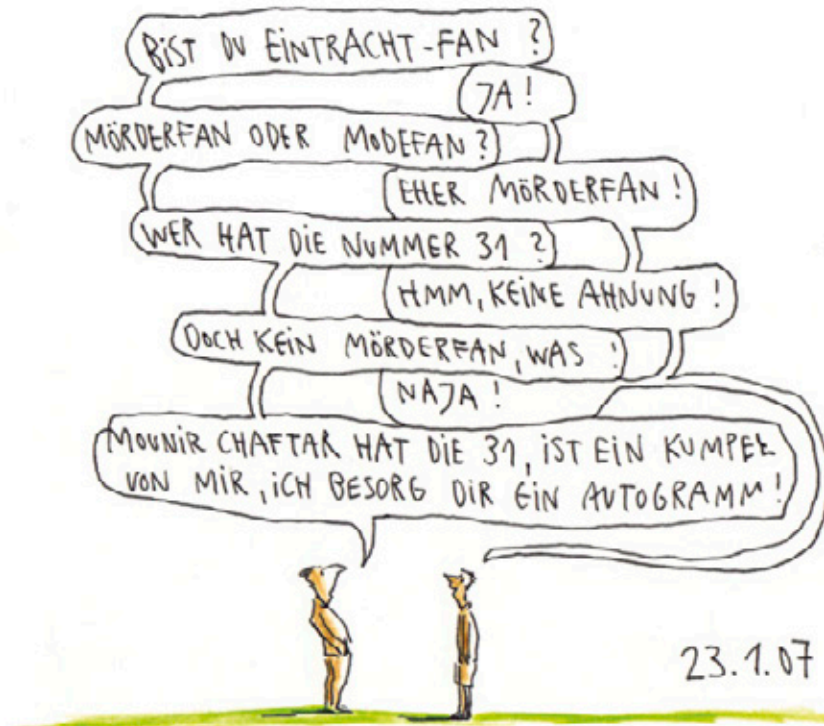 BiST DU EiNTRACHT-FAN ?
JA !
MÖRDERFAN ODER MODEFAN ?
EHER MÖRDERFAN !
WER HAT DiE NUMMER 31 ?
HMM, KEiNE AHNUNG !
DOCH KEiN MÖRDERFAN, WAS !
NAJA !
MOUNiR CHAFTAR HAT DiE 31, iST EiN KUMPEL
VON MiR, iCH BESORG DiR EiN AUTOGRAMM !
23.1.07